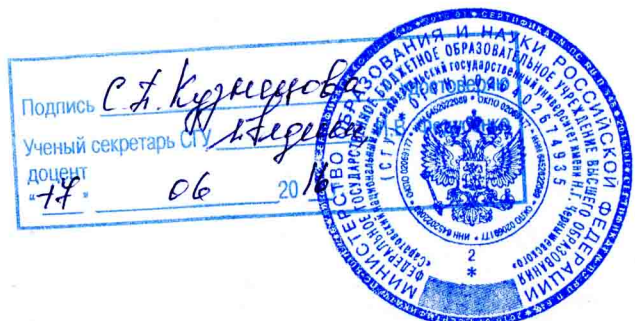 Подпись С.П. Кузнецова удостоверяю
Ученый секретарь СГУ
доцент
"17" 06 2016
МИНИСТЕРСТВО ОБРАЗОВАНИЯ И НАУКИ РОССИЙСКОЙ ФЕДЕРАЦИИ
ФЕДЕРАЛЬНОЕ ГОСУДАРСТВЕННОЕ БЮДЖЕТНОЕ ОБРАЗОВАТЕЛЬНОЕ УЧРЕЖДЕНИЕ ВЫСШЕГО ОБРАЗОВАНИЯ
"Саратовский национальный исследовательский государственный университет имени Н.Г. Чернышевского"
(СГУ)
* ИНН 6452022089 * ОКПО 02069177
2
*